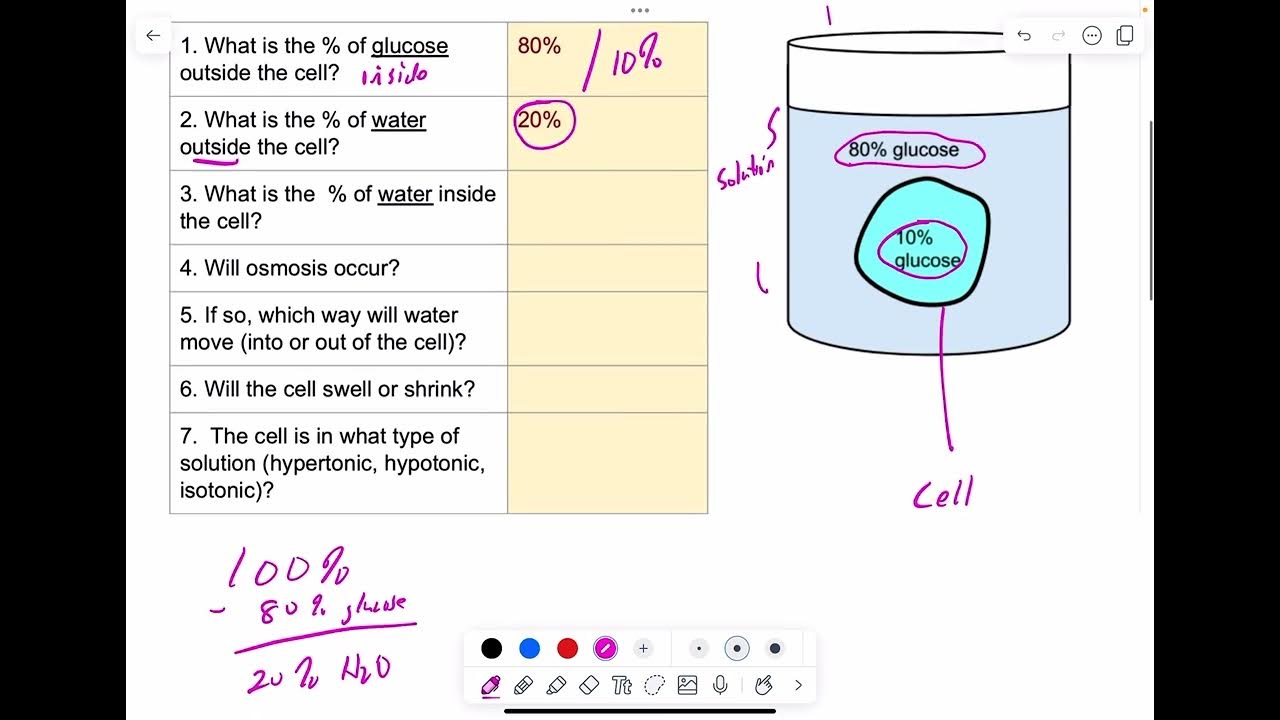 1. What is the % of glucose
outside the cell?
inside
80%
/ 10%
2. What is the % of water
outside the cell?
20%
3. What is the % of water inside
the cell?
4. Will osmosis occur?
5. If so, which way will water
move (into or out of the cell)?
6. Will the cell swell or shrink?
7. The cell is in what type of
solution (hypertonic, hypotonic,
isotonic)?
Solution
80% glucose
10%
glucose
Cell
100%
- 80% glucose
20% H2O
Tt